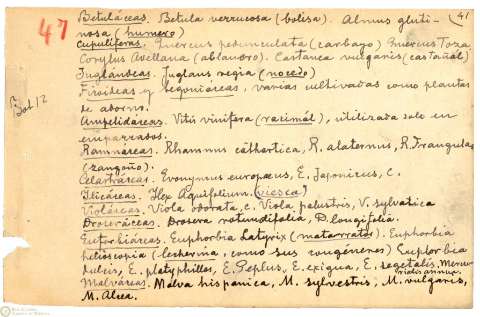 47
41
Bot 12
Betuláceas. Betula verrucosa (bolisa). Alnus gluti-
nosa (humero)
Cupulíferas. Quercus pedunculata (carbayo) Quercus Toza
Corylus Avellana (ablanoro). Castanea vulgaris (castañal)
Juglándeas. Juglans regia (nocedo)
y Begoniáceas, varias cultivadas como plantas
de adorno.
Ampelidáceas. Vitis vinifera (racimál), utilizada solo en
emparrados.
Ramnáceas. Rhammus cathartica, R. alaternus, R. Frangula
(zangoño).
Celastráceas. Evonymus europaeus, E. Japonicus, C.
Ilicáceas. Ilex Aquifolium. (yiesca)
Violáceas. Viola odorata, C. Viola palustris, V. sylvatica
Droseráceas. Drosera rotundifolia, D. longifolia.
Euforbiáceas. Euphorbia Latyrix (matarratos). Euphorbia
helioscopia (lecherina, como sus congéneres) Euphorbia
dulcis, E. platyphillos, E. Peplus, E. exigua, E. segetalis, Mercu-
rialis annua.
Malváceas. Malva hispanica, M. sylvestris, M. vulgaris,
M. Alcea.